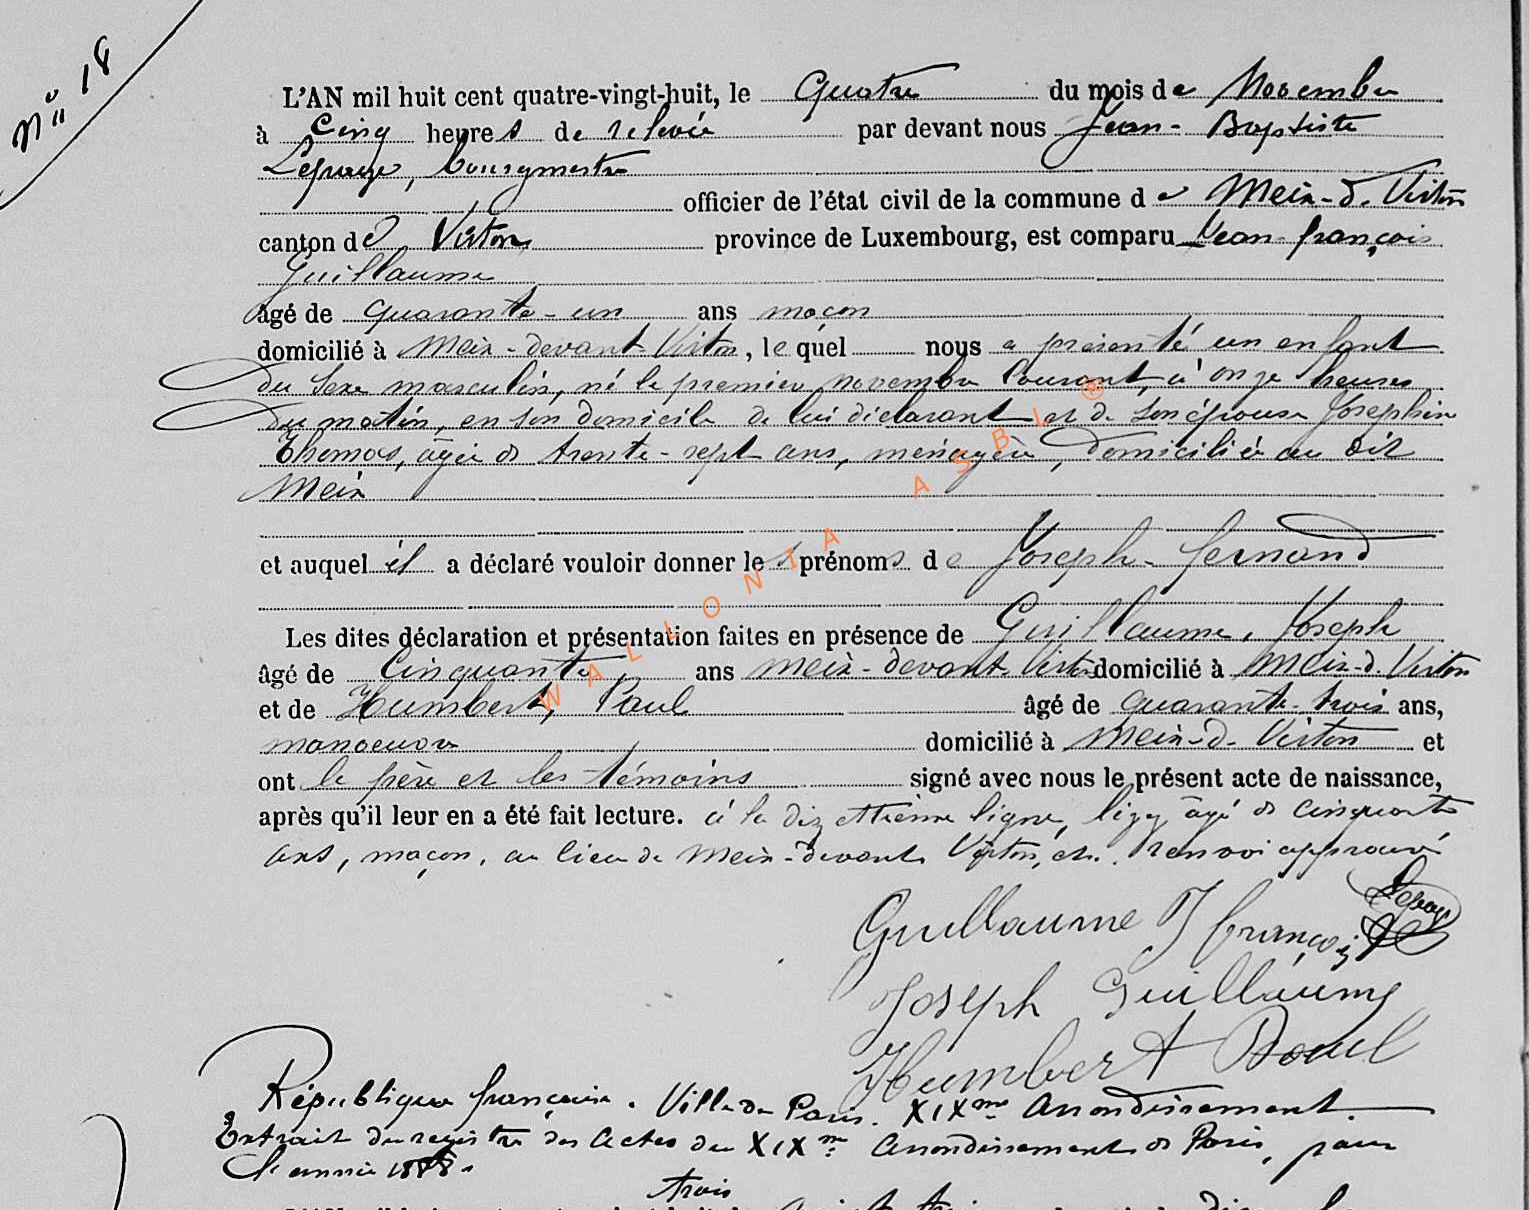 N° 18
L'AN mil huit cent quatre-vingt-huit, le Quatre du mois de Novembre
à Cinq heures de relevée par devant nous Jean-Baptiste
Lepage, bourgmestre
officier de l'état civil de la commune de Meix-d. Virton
canton de Virton province de Luxembourg, est comparu Jean-françois
Guillaume
âgé de quarante-un ans maçon
domicilié à Meix-devant-Virton, lequel nous a présenté un enfant
du sexe masculin, né le premier novembre courant, à onze heures
du matin, en son domicile de lui déclarant et de son épouse Joséphine
Thomas, âgée de trente-sept ans, ménagère, domiciliée au dit
Meix
et auquel il a déclaré vouloir donner les prénoms de Joseph-fernand
Les dites déclaration et présentation faites en présence de Guillaume, Joseph
âgé de Cinquante ans Meix-devant-Virton domicilié à Meix-d. Virton
et de Humbert, Paul âgé de quarante-trois ans,
manoeuvre domicilié à Meix-d-Virton et
ont le père et les témoins signé avec nous le présent acte de naissance,
après qu'il leur en a été fait lecture. à la dix ligne, lizez âgé de cinquante
ans, maçon, au lieu de Meix-devant Virton, etc. renvoi approuvé
Lepage
Guillaume J françois
Joseph Guillaume
Humbert Paul
République française. Ville de Paris. XIXme Arrondissement.
Extrait du registre des Actes du XIXme Arrondissement de Paris, pour
l'année 1888.
trois
WALLONIA ASBL ®